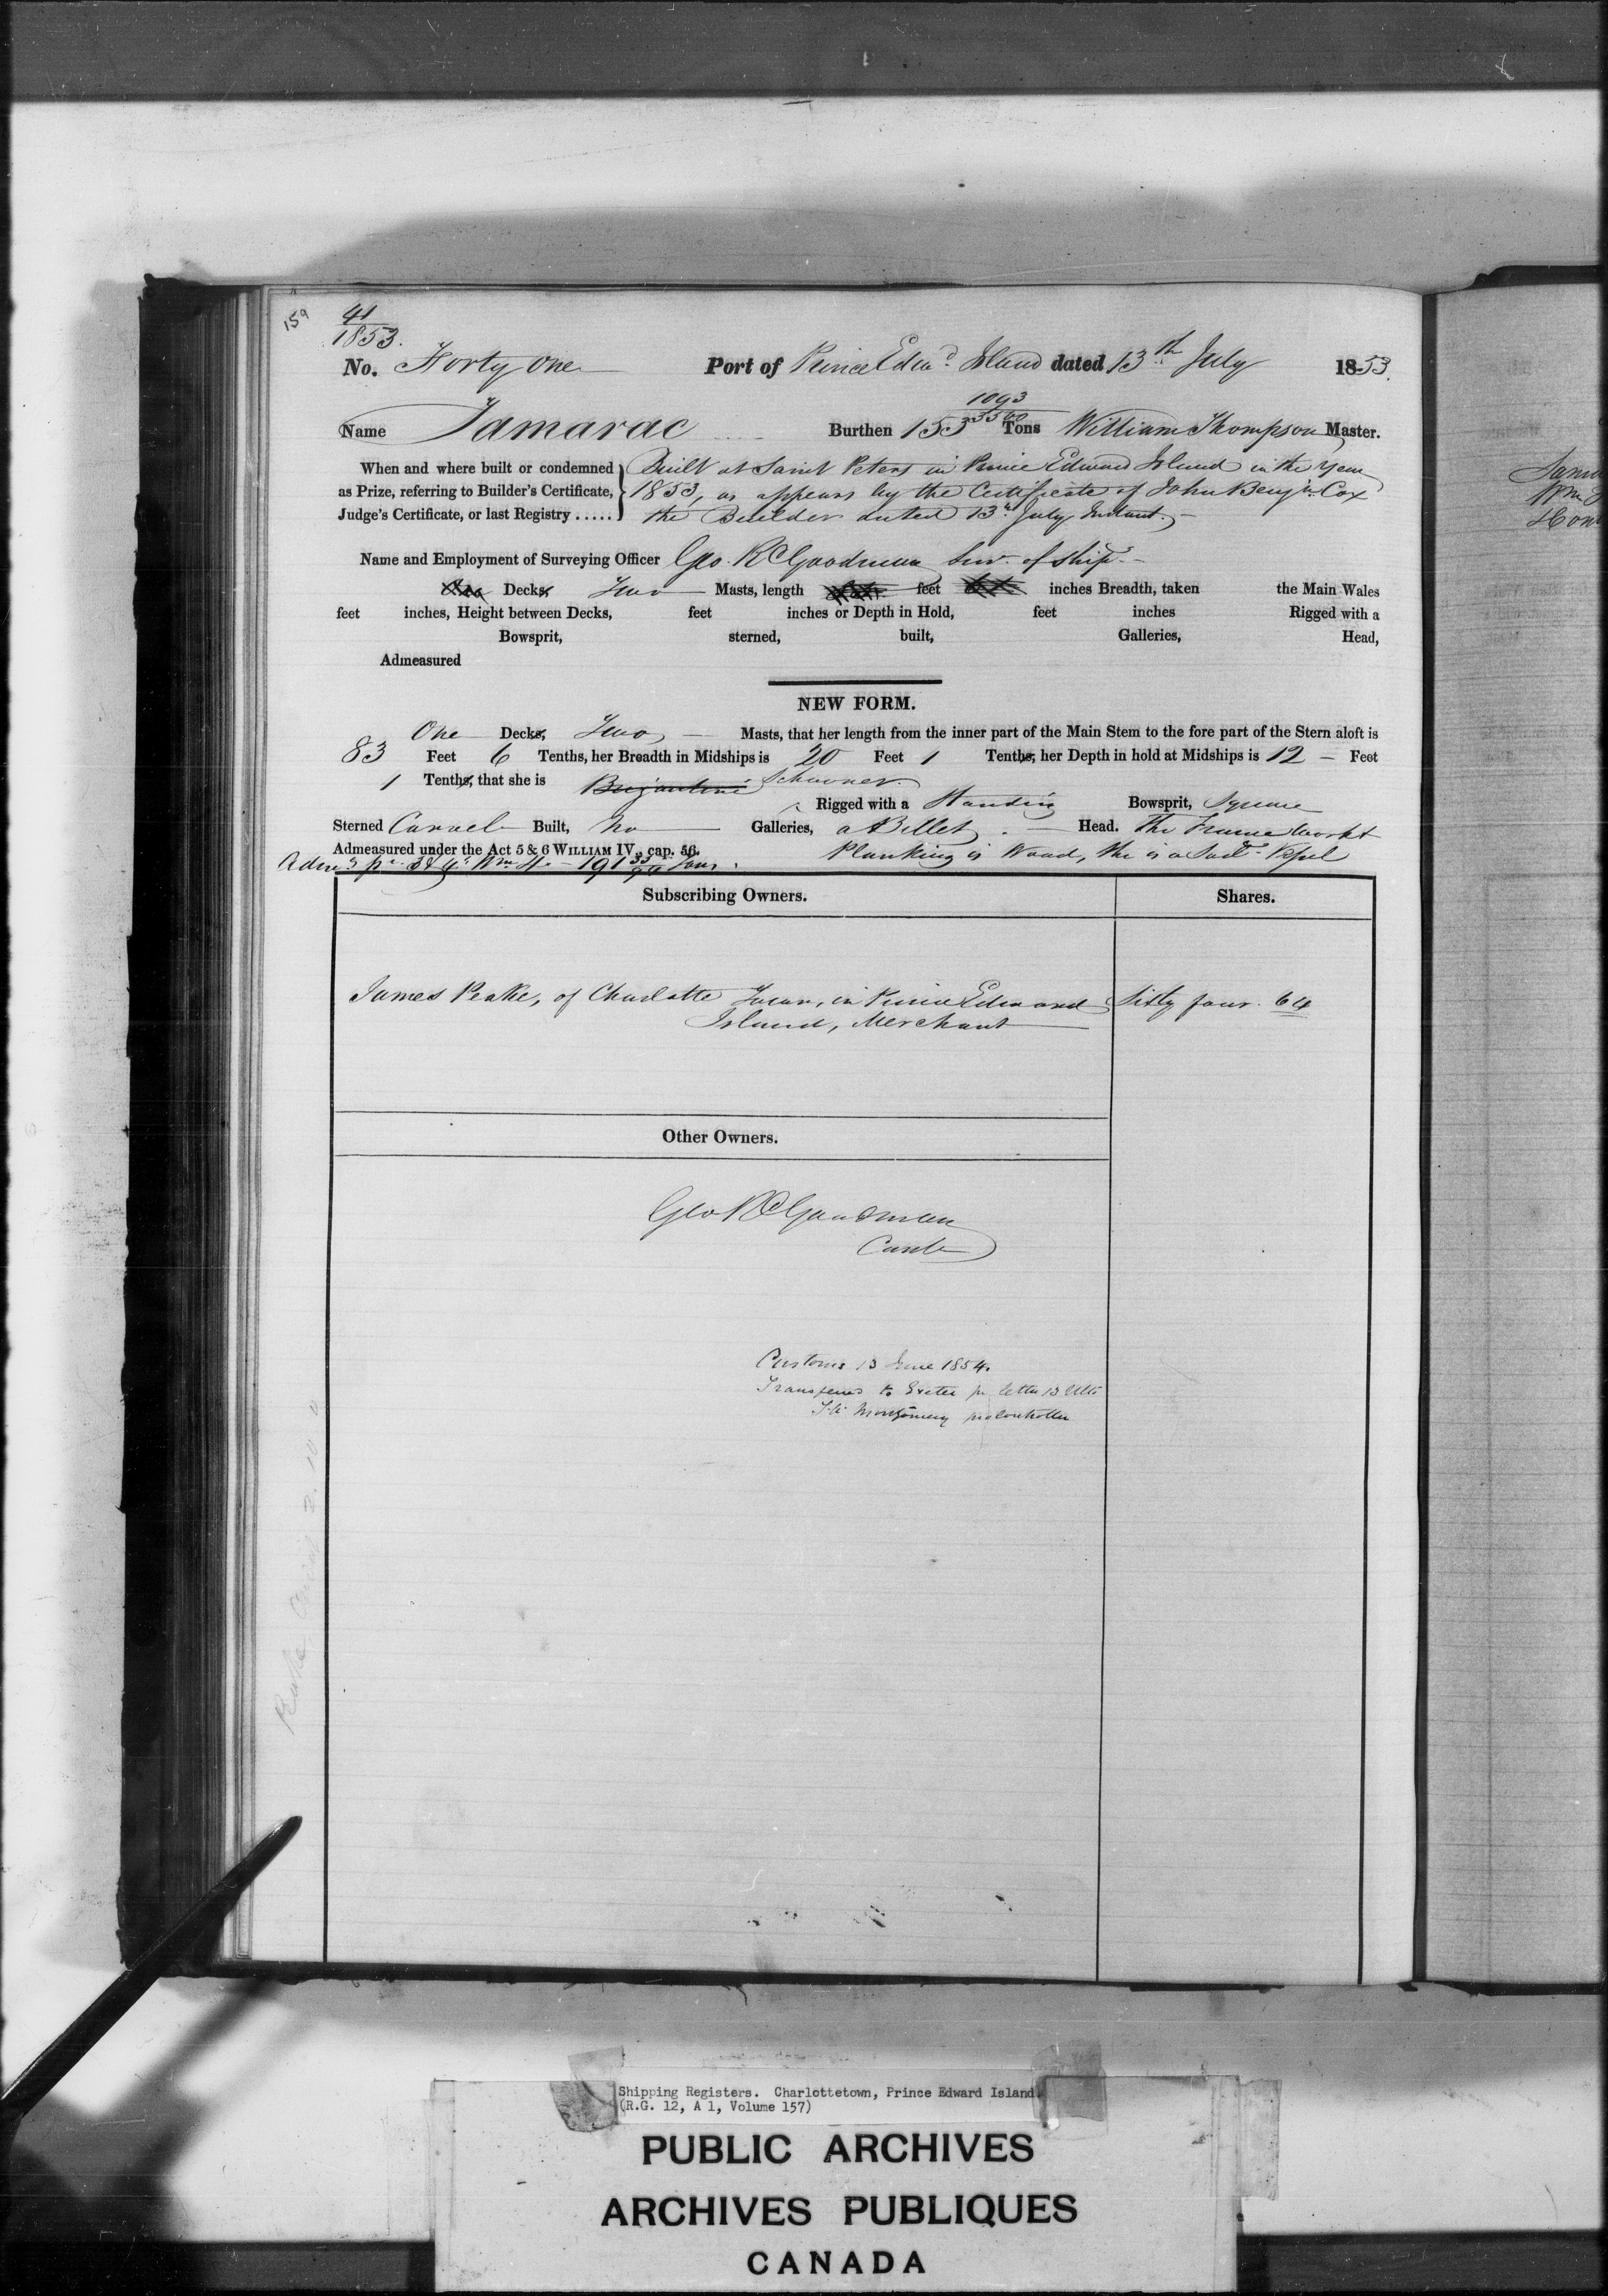 159
41
1853.
No. Forty one Port of Prince Edwd. Island dated 13th July 1853.
Name Tamarac Burthen 153 1093/3500 Tons William Thompson Master.
When and where built or condemned as Prize, referring to Builder's Certificate, Judge's Certificate, or last Registry.....
Built at Saint Peters in Prince Edward Island in the Year
1853, as appears by the Certificate of John Benjn. Cox
the Builder dated 13th July Instant.
Name and Employment of Surveying Officer Geo. R C Goodman Sur. of Ship.
Decks, Two Masts, length feet inches Breadth, taken the Main Wales
feet inches, Height between Decks, feet inches or Depth in Hold, feet inches Rigged with a
Bowsprit, sterned, built, Galleries, Head,
Admeasured
NEW FORM.
One Decks, Two Masts, that her length from the inner part of the Main Stem to the fore part of the Stern aloft is
83 Feet 6 Tenths, her Breadth in Midships is 20 Feet 1 Tenths, her Depth in hold at Midships is 12 Feet
1 Tenths, that she is Brigantine Schooner.
Rigged with a Standing Bowsprit, Square
Sterned Carvel Built, No Galleries, a Billet Head. The Frame Work &
Admeasured under the Act 5 & 6 WILLIAM IV., cap. 56. Planking is Wood, she is a Sail Vessel
191 33/94 Tons.
Subscribing Owners. Shares.
James Peake, of Charlotte Town, in Prince Edward Sixty four 64
Island, Merchant
Other Owners.
Geo R C Goodman
Contr
Customs 13 June 1854.
Transferred to Exeter pr letter 13 Ulto
Montgomery pro Controller
Peake 2. 10. 0
Shipping Registers. Charlottetown, Prince Edward Island.
(R.G. 12, A 1, Volume 157)
PUBLIC ARCHIVES
ARCHIVES PUBLIQUES
CANADA